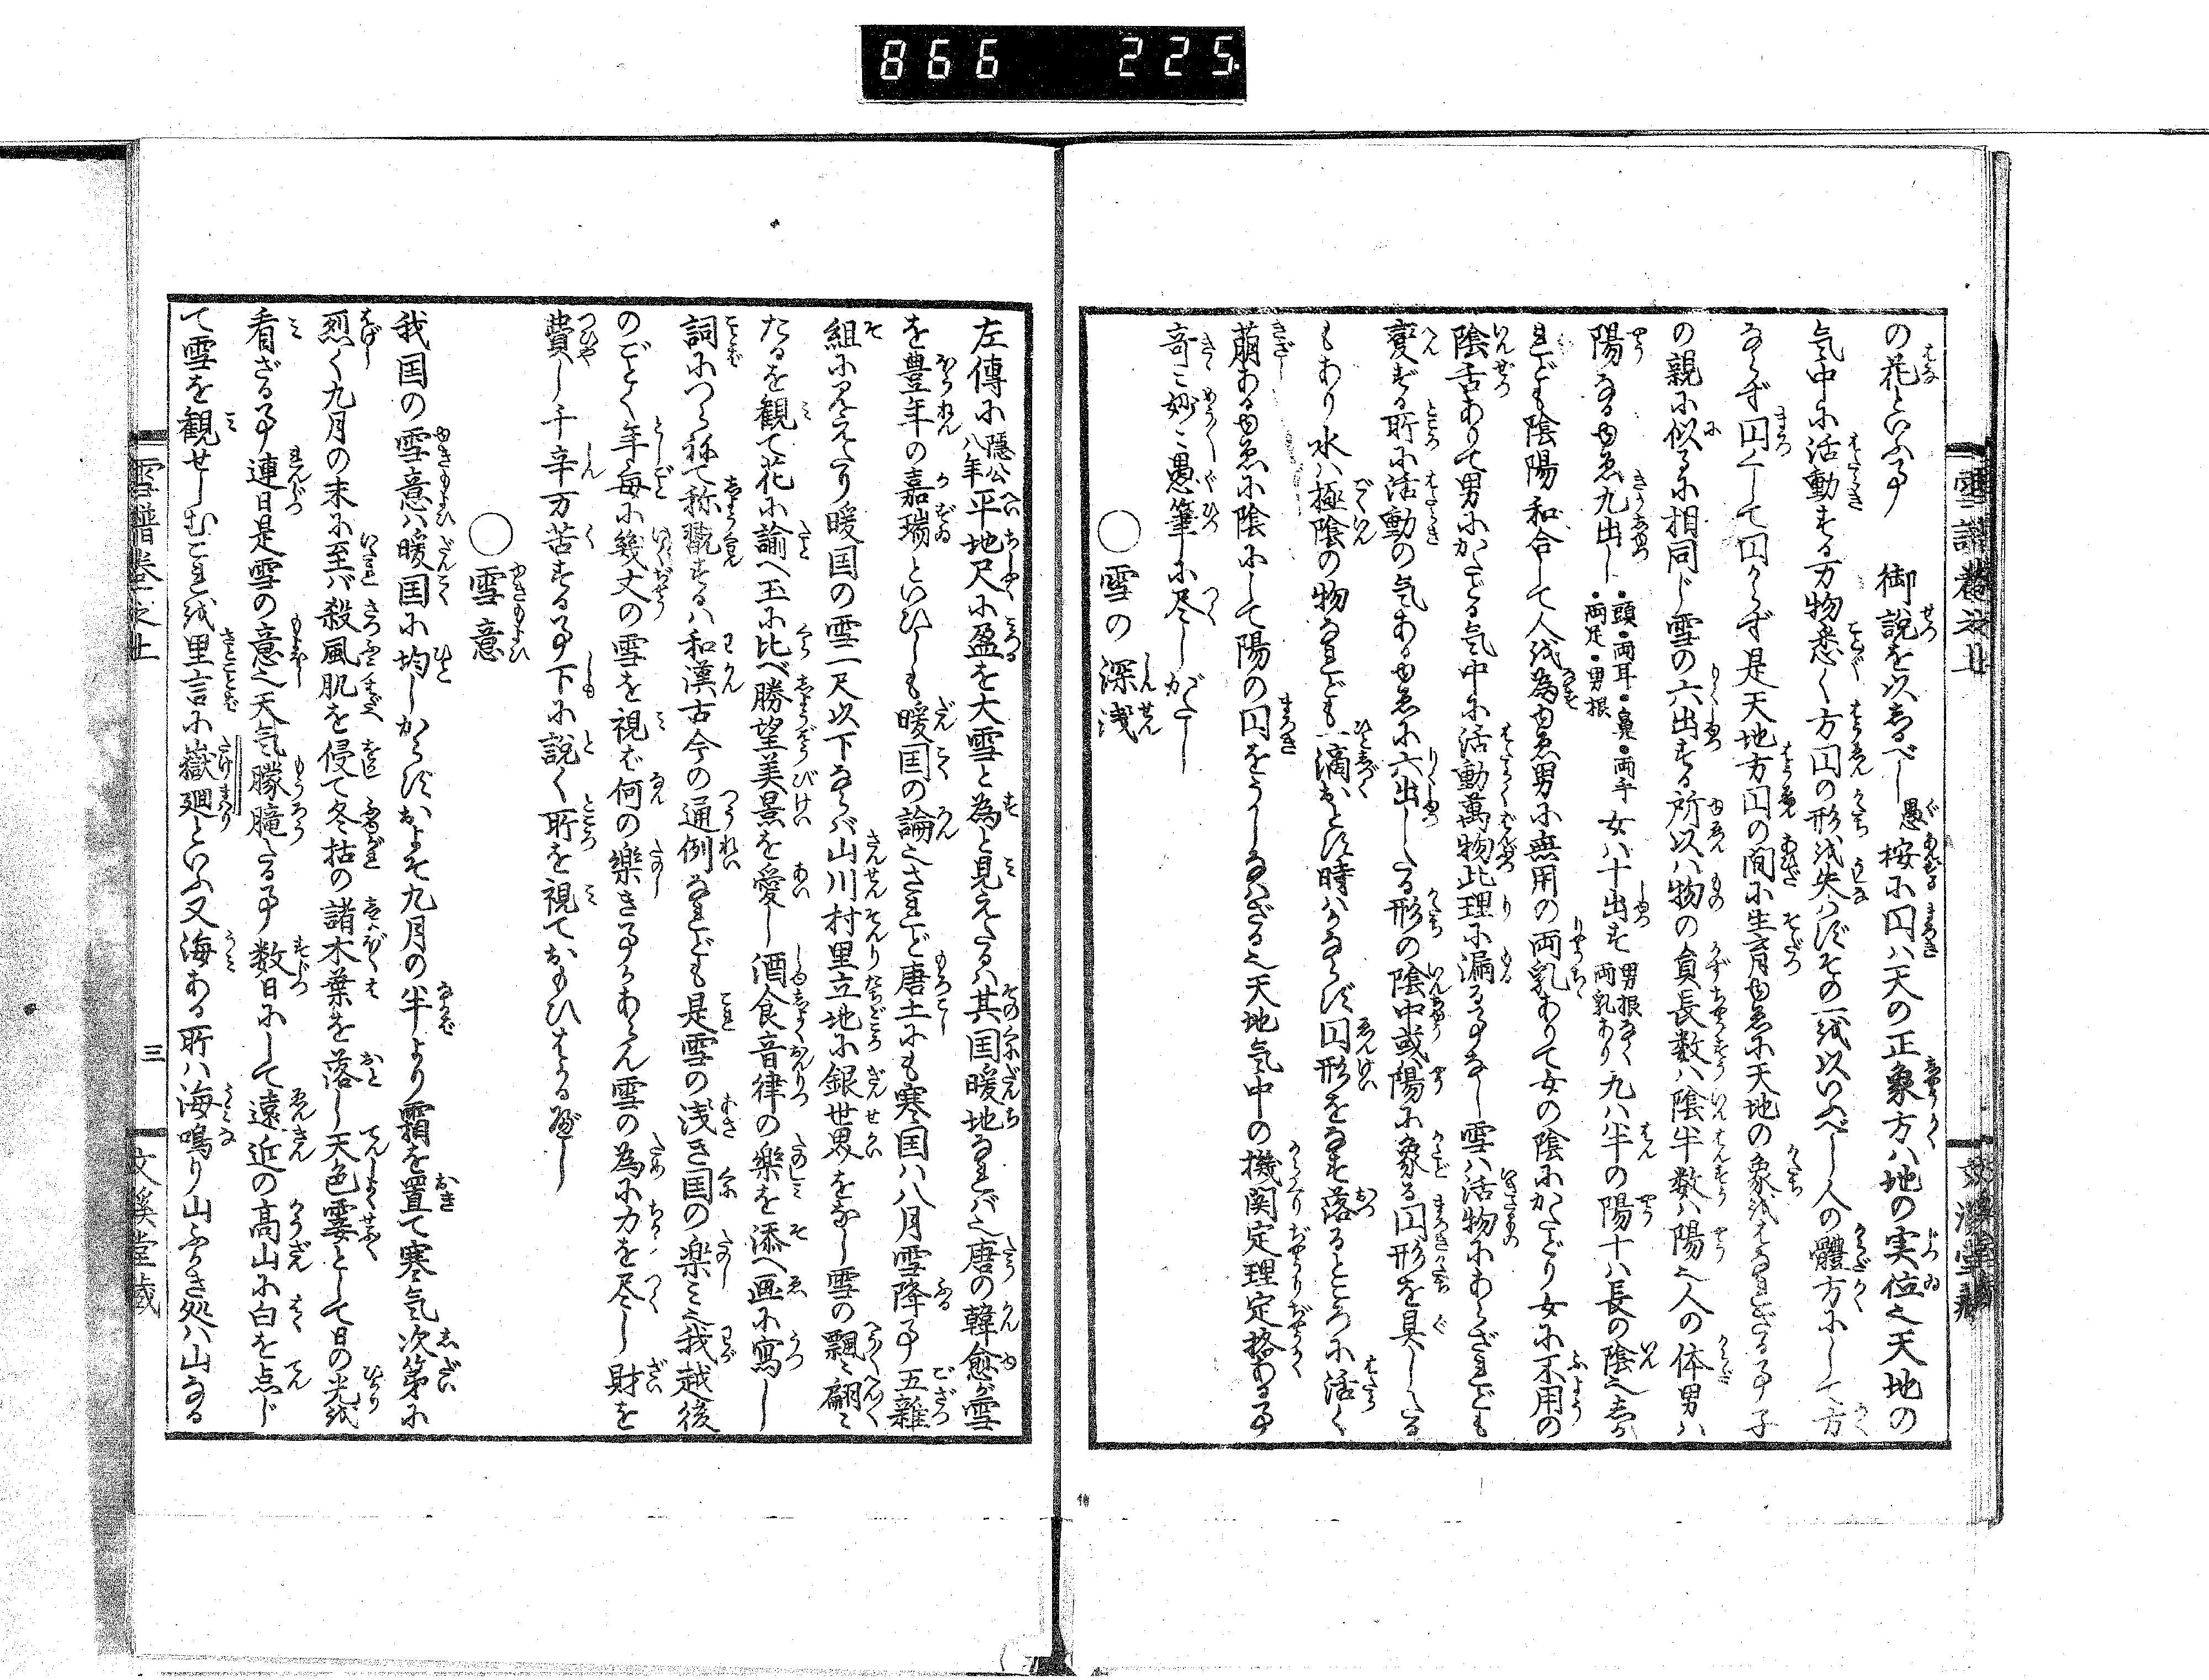 866 225
雪譜巻之上
の花といふ事 御説を以しるべし愚按に円は天の正象方は地の実位也天地の
気中に活動する万物悉く方円の形を失はずその一を以いふべし人の體方にして方
ならず円くして円からず是天地方円の間に生育ゆゑに天地の象をはなれざる事子
の親に似るに相同じ雪の六出する所以は物の員長数は陰半数は陽也人の体男は
陽なるゆゑ九出し ●頭●両耳●鼻●両手●両足●男根 女は十出す 男根なく両乳あり 九は半の陽十は長の陰也しか
れども陰陽和合して人を為ゆゑ男に無用の両乳ありて女の陰にかたどり女に不用の
陰舌ありて男にかたどる気中に活動萬物此理に漏る事なし雪は活物にあらざれども
変ずる所に活動の気あるゆゑに六出したる形の陰中或陽に象る円形を具したる
もあり水は極陰の物なれども一滴おとす時はかならず円形をなす落るところに活く
萠あるゆゑに陰にして陽の円をうしなはざる也天地気中の機関定理定格ある事
奇々妙々愚筆に尽しがたし
○雪の深浅
左傳に 隠公八年 平地尺に盈を大雪と為と見えたるは其国暖地なれば也唐の韓愈が雪
を豊年の嘉瑞といひしも暖国の論也されど唐土にも寒国は八月雪降事五雑
組に見えたり暖国の雪一尺以下ならば山川村里立地に銀世界をなし雪の飄々翩々
たるを観て花に諭へ玉に比べ勝望美景を愛し酒食音律の楽を添へ画に写し
詞につらね称て称翫するは和漢古今の通例なれども是雪の浅き国の楽み也我越後
のごとく年毎に幾丈の雪を視ば何の楽き事かあらん雪の為に力を尽し財を
費し千辛万苦する事下に説く所を視ておもひはかるべし
○雪意
我国の雪意は暖国に均しからずおよそ九月の半より霜を置て寒気次第に
烈く九月の末に至ば殺風肌を侵て冬枯の諸木葉を落し天色霎として日の光を
看ざる事連日是雪の意也天気朦朧たる事数日にして遠近の高山に白を点じ
て雪を観せしむこれを里言に嶽廻といふ又海ある所は海鳴り山ふかき処は山なる
雪譜巻之上
三
文溪堂蔵